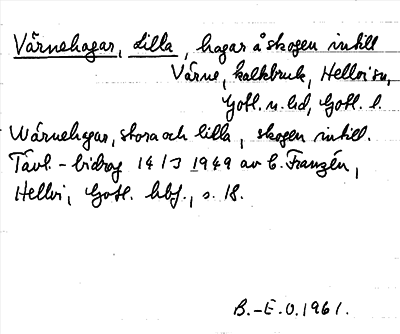 Värnehagar, Lilla, hagar å skogen intill
Värne, kalkbruk, Hellvi sn,
Gotl. n. hd, Gotl. l.
Wärnehagar, stora och lilla, skogen intill.
Tävl.-bidrag 14/3 1949 av C. Franzén,
Hellvi, Gotl. hbf., s. 18.
B.-E. O. 1961.